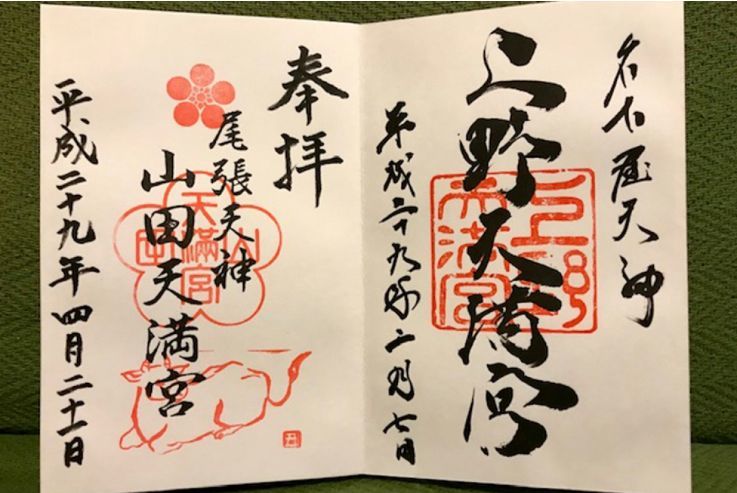 名古屋天神
上野天満宮
上野
天満宮
平成二十九年二月七日
奉拝
尾張天神
山田天満宮
山田
天満宮
平成二十九年四月二十一日
丑